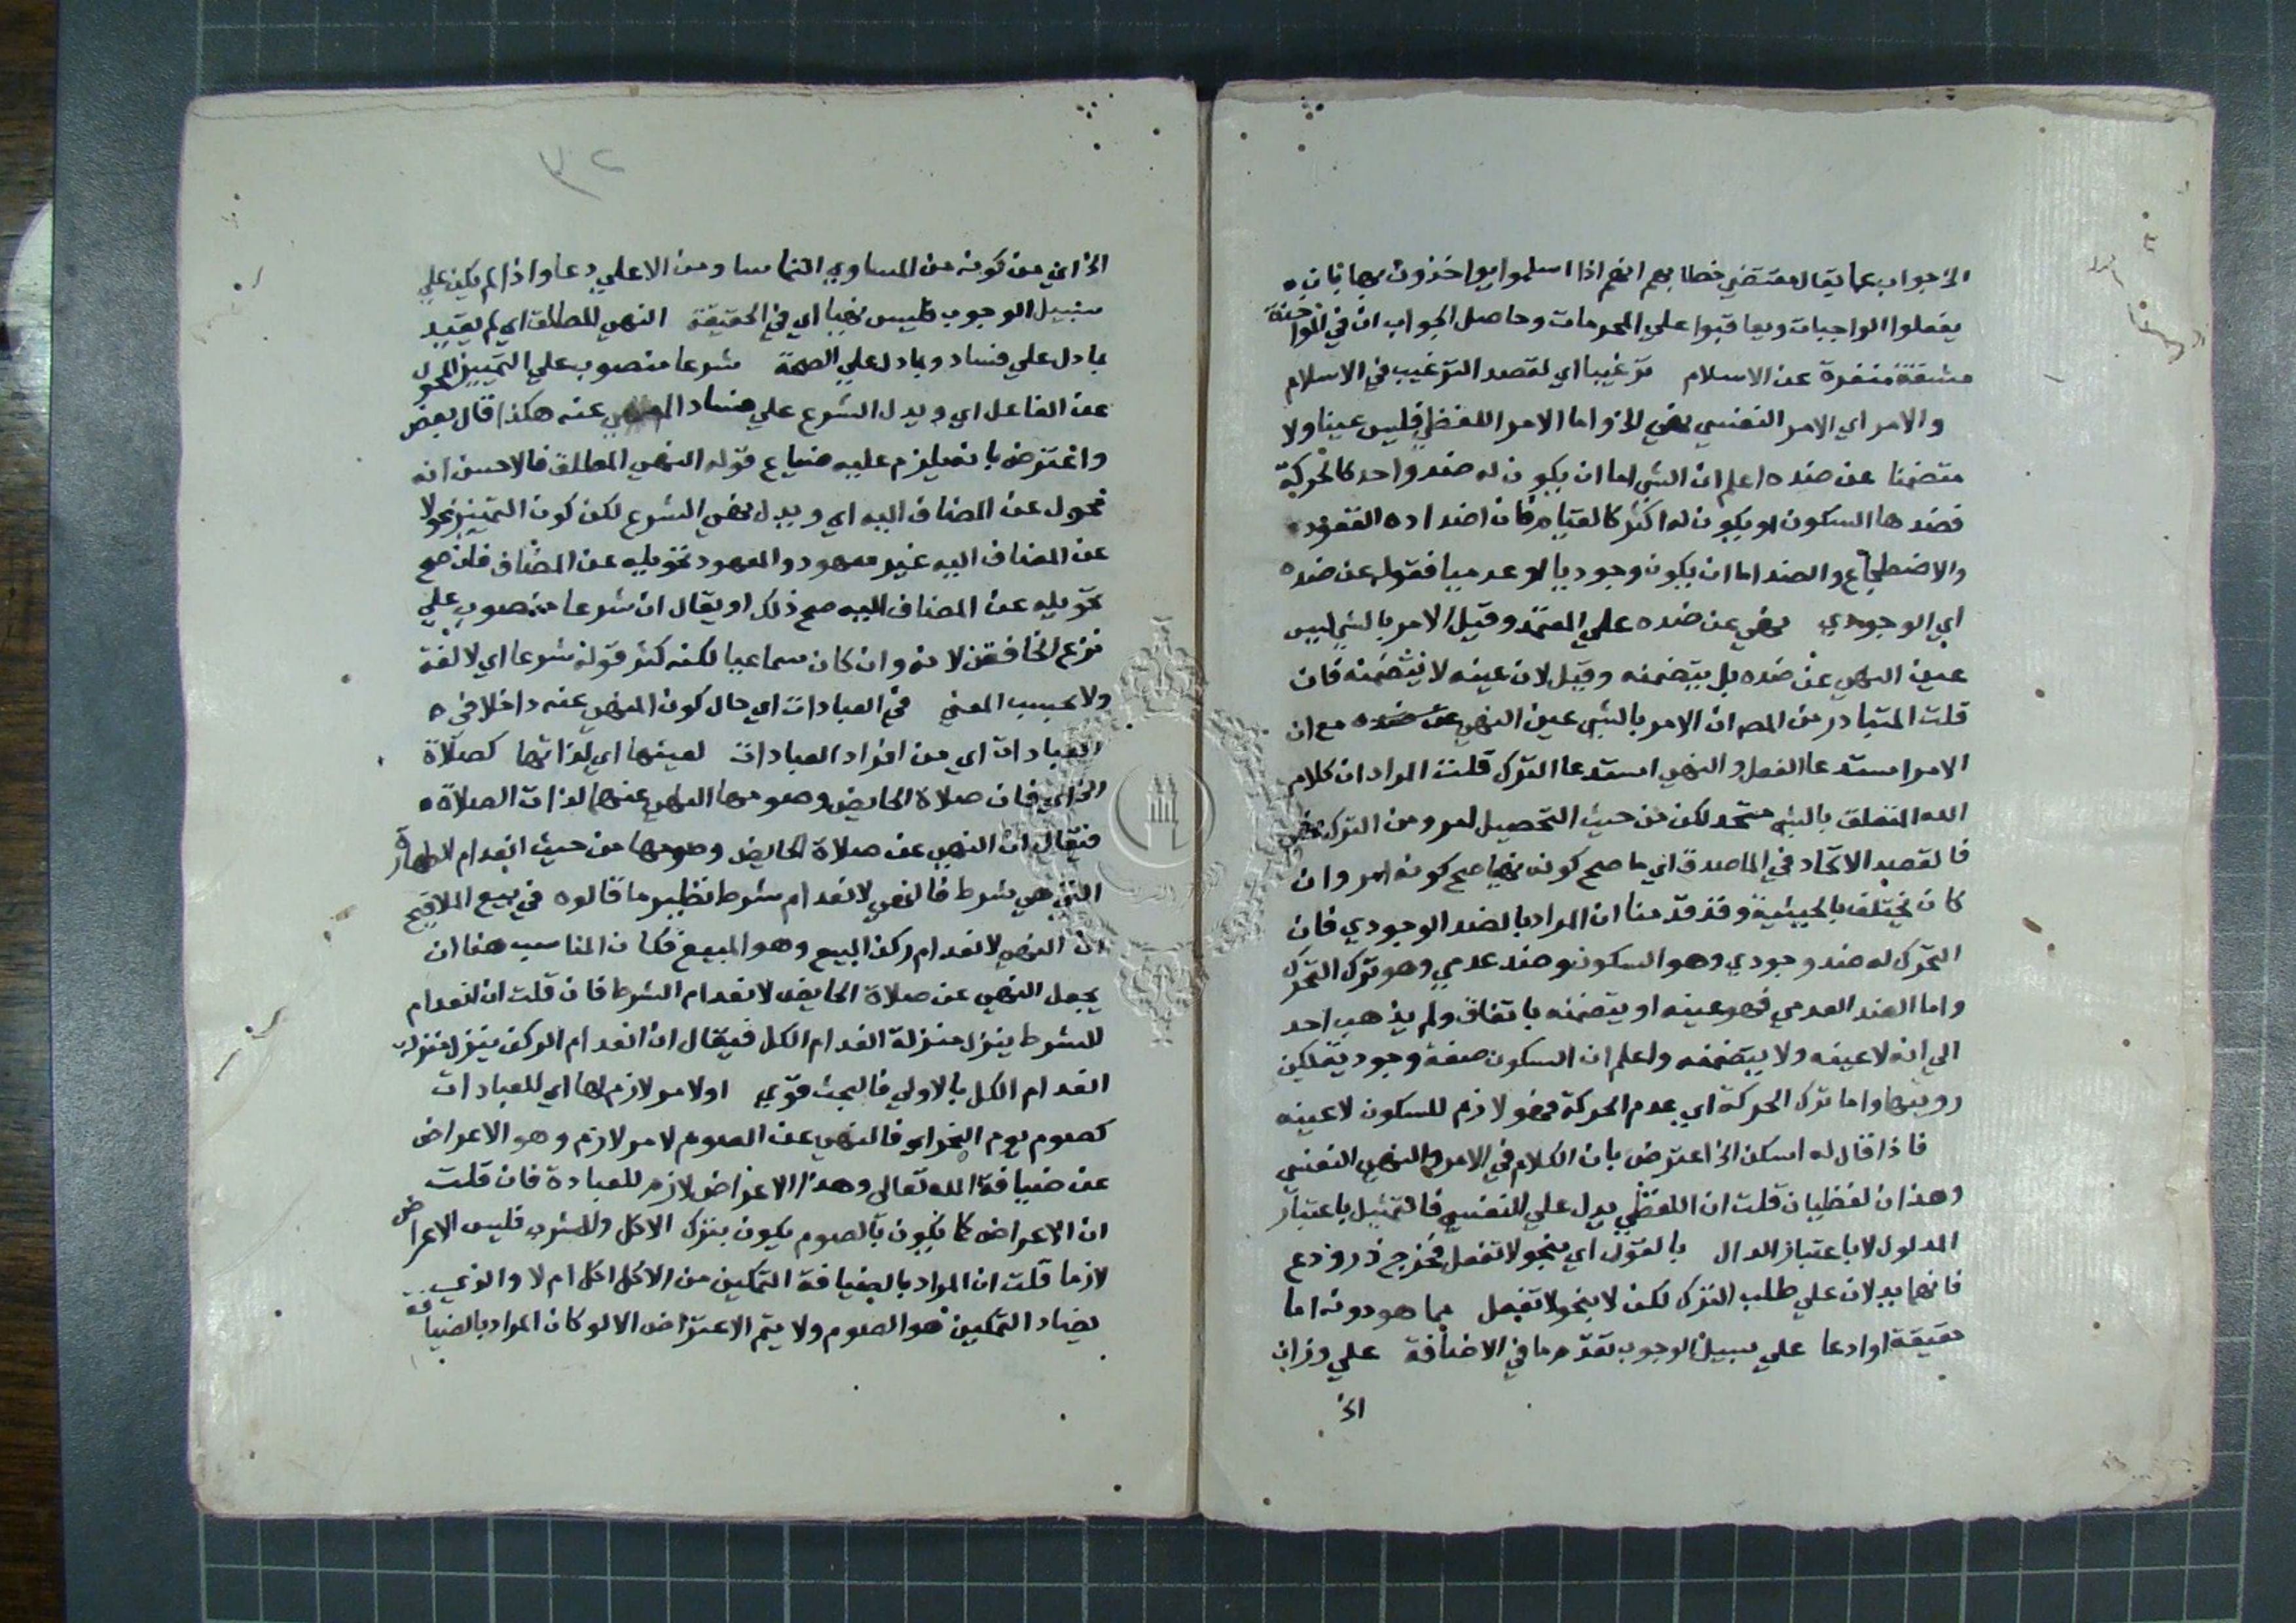 الخ جواب عما يقال مقتضي خطابهم انهم اذا اسلموا يواخذون بها بان
يفعلوا الواجبات ويعاقبوا علي المحرمات وحاصل الجواب ان في المواخذة
مشقة منفرة عن الاسلام ترغيبا اي لقصد الترغيب في الاسلام
والامر اي الامر النفسي نهي الخ واما الامر اللفظي فليس عينا ولا
متضمنا عن ضده اعلم ان الشي اما ان يكون له ضد واحد كالحركة
فضدها السكون او يكون له اكثر كالقيام فان اضداده القعود
والاضطجاع والضد اما ان يكون وجوديا او عدميا فقوله عن ضده
اي الوجودي نهي عن ضده علي المعتمد وقيل الامر بالشي ليس
عين النهي عن ضده بل يتضمنه وقيل لان عينه لا يتضمنه فان
قلت المتبادر من المص ان الامر بالشي عين النهي عن ضده مع ان
الامر استدعا الفعل والنهي استدعا الترك قلت المراد ان كلام
الله المتعلق بالشي متحد لكن من حيث التحصيل امر ومن الترك نهي
فالقصد الاتحاد في الماصدق اي ما صح كونه نهيا صح كونه امر وان
كان يختلف بالحيثية وقد قدمنا ان المراد بالضد الوجودي فان
التحرك له ضد وجودي وهو السكون وضد عدمي وهو ترك التحرك
واما الضد العدمي فهو عينه او يتضمنه باتفاق ولم يذهب احد
الي انه لا عينه ولا يتضمنه واعلم ان السكون صفة وجودية يمكن
رويتها واما ترك الحركة اي عدم الحركة فهو لازم للسكون لا عينه
فاذا قال له اسكن الخ اعترض بان الكلام في الامر والنهي النفسي
وهذان لفظيان قلت ان اللفظي يدل علي النفسي فالتمثيل باعتبار
المدلول لا باعتبار الدال بالقول اي بنحو لا تفعل فخرج ذر ودع
فانهما يدلان علي طلب الترك لكن لا بنحو لا تفعل مما هو دونه اما
حقيقة او ادعا علي سبيل الوجوب تقدم ما في الاضافة علي وزان
الخ
٣٢
الخ اي من كونه من المساوي التماسا ومن الاعلي دعا واذا لم يكن علي
سبيل الوجوب فليس نهيا اي في الحقيقة النهي المطلق اي لم يقيد
بما دل علي فساد وبما دل علي الصحة شرعا منصوب علي التمييز المحول
عن الفاعل اي ويدل الشرع علي فساد المنهي عنه هكذا قال بعض
واعترض بانه يلزم عليه ضياع قوله النهي المطلق فالاحسن انه
محول عن المضاف اليه اي ويدل نهي الشرع لكن كون التمييز محولا
عن المضاف اليه غير معهود والمعهود تحويله عن المضاف فان صح
تحويله عن المضاف اليه صح ذلك او يقال ان شرعا منصوب علي
نزع الخافض لانه وان كان سماعيا لكنه كثر قوله شرعا اي لا لغة
ولا بحسب المعني في العبادات اي حال كون المنهي عنه داخلا في
العبادات اي من افراد العبادات لعينها اي لذاتها كصلاة
الخ اي فان صلاة الحايض وصومها المنهي عنهما لذات الصلاة
فيقال ان النهي عن صلاة الحايض وصومها من حيث انعدام الطهارة
التي هي شرط فالنهي لانعدام شرط نظير ما قالوه في بيع الملاقيح
ان النهي لانعدام ركن البيع وهو المبيع فكان المناسب هنا ان
يجعل النهي عن صلاة الحايض لانعدام الشرط فان قلت ان انعدام
الشرط ينزل منزلة انعدام الكل فيقال ان انعدام الركن ينزل منزلة
انعدام الكل بالاولي فالبحث قوي او لامر لازم لها اي للعبادات
كصوم يوم النحر اي فالنهي عن الصوم لامر لازم وهو الاعراض
عن ضيافة الله تعالي وهذا الاعراض لازم للعبادة فان قلت
ان الاعراض كما يكون بالصوم يكون بترك الاكل والشرب فليس الاعراض
لازما قلت ان المراد بالضيافة التمكين من الاكل اكل ام لا والذي
يضاد التمكين هو الصوم ولا يتم الاعتراض الا لو كان المراد بالضيافة